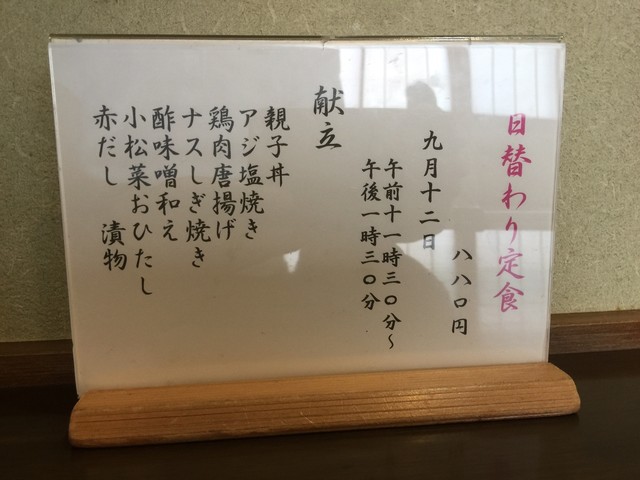 日替わり定食
八八〇円
九月十二日
午前十一時三〇分～
午後一時三〇分
献立
親子丼
アジ塩焼き
鶏肉唐揚げ
ナスしぎ焼き
酢味噌和え
小松菜おひたし
赤だし　漬物